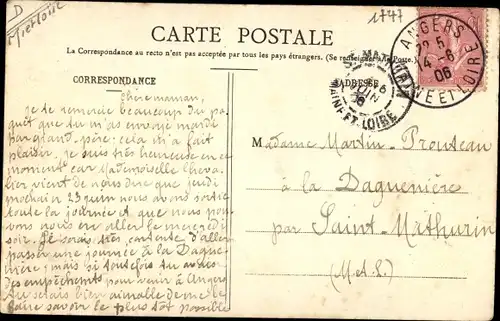 D
1747
CARTE POSTALE
La Correspondance au recto n'est pas acceptée par tous les pays étrangers. (Se renseigner à la Poste.)
CORRESPONDANCE
ADRESSE
ANGERS
14-6
06
MAINE ET LOIRE
JUIN
MAINE ET LOIRE
chère maman,
Je te remercie beaucoup du pa
quet que tu m'as envoyé mardi
par grand-père; cela m'a fait
plaisir. Je suis très heureuse en ce
moment car Mademoiselle Cheva
lier vient de nous dire que jeudi
prochain 23 juin nous avons sortie
toute la journée et que nous pou
vons nous en aller le mercredi
soir. Je serais très contente d'aller
passer une journée à la Dague
nière; mais si toutefois tu avais
des empêchements pour venir à Angers
tu serais bien aimable de me le
faire savoir le plus tôt possible
Madame Martin-Prouteau
à la Daguenière
par Saint-Mathurin
(M.-et-L.)